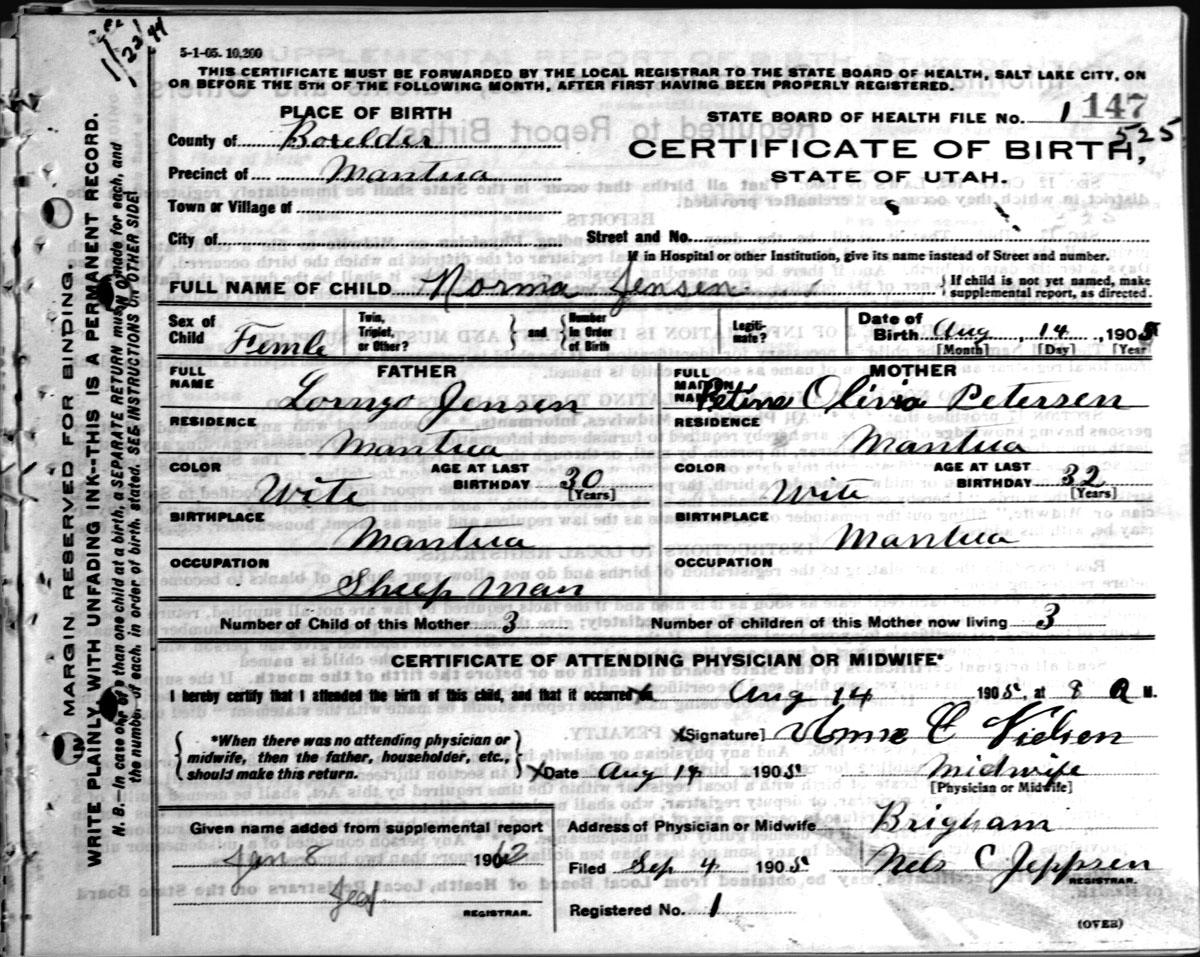 5-1-05. 10,200
THIS CERTIFICATE MUST BE FORWARDED BY THE LOCAL REGISTRAR TO THE STATE BOARD OF HEALTH, SALT LAKE CITY, ON
OR BEFORE THE 5TH OF THE FOLLOWING MONTH, AFTER FIRST HAVING BEEN PROPERLY REGISTERED.
PLACE OF BIRTH
STATE BOARD OF HEALTH FILE NO. 1 147
525
County of Boxelder
CERTIFICATE OF BIRTH,
Precinct of Mantua
STATE OF UTAH.
Town or Village of
City of Street and No.
If in Hospital or other Institution, give its name instead of Street and number.
FULL NAME OF CHILD Norma Jensen } If child is not yet named, make supplemental report, as directed.
Sex of Child Femle Twin, Triplet, or Other? } and { Number in Order of Birth Legiti-mate? Date of Birth Aug 14, 1905
[Month] [Day] [Year]
FATHER
MOTHER
FULL NAME Jensen
FULL MAIDEN NAME Olivia Petersen
RESIDENCE Mantua
RESIDENCE Mantua
COLOR Wite AGE AT LAST BIRTHDAY 30 [Years]
COLOR Wite AGE AT LAST BIRTHDAY 32 [Years]
BIRTHPLACE Mantua
BIRTHPLACE Mantua
OCCUPATION Sheep man
OCCUPATION
Number of Child of this Mother 3 Number of children of this Mother now living 3
CERTIFICATE OF ATTENDING PHYSICIAN OR MIDWIFE*
I hereby certify that I attended the birth of this child, and that it occurred Aug 14 1905, at 8 A M.
{ *When there was no attending physician or midwife, then the father, householder, etc., should make this return. }
X[Signature] C Nielsen
XDate Aug 14 1905 Midwife
[Physician or Midwife]
Given name added from supplemental report
Jan 8 190
REGISTRAR.
Address of Physician or Midwife Brigham
Filed Sep 4 1905 Nels C Jeppsen
REGISTRAR.
Registered No. 1
(OVER)
MARGIN RESERVED FOR BINDING.
WRITE PLAINLY WITH UNFADING INK--THIS IS A PERMANENT RECORD.
N. B.—In case of more than one child at a birth, a SEPARATE RETURN must be made for each, and
the number of each, in order of birth, stated. SEE INSTRUCTIONS ON OTHER SIDE.